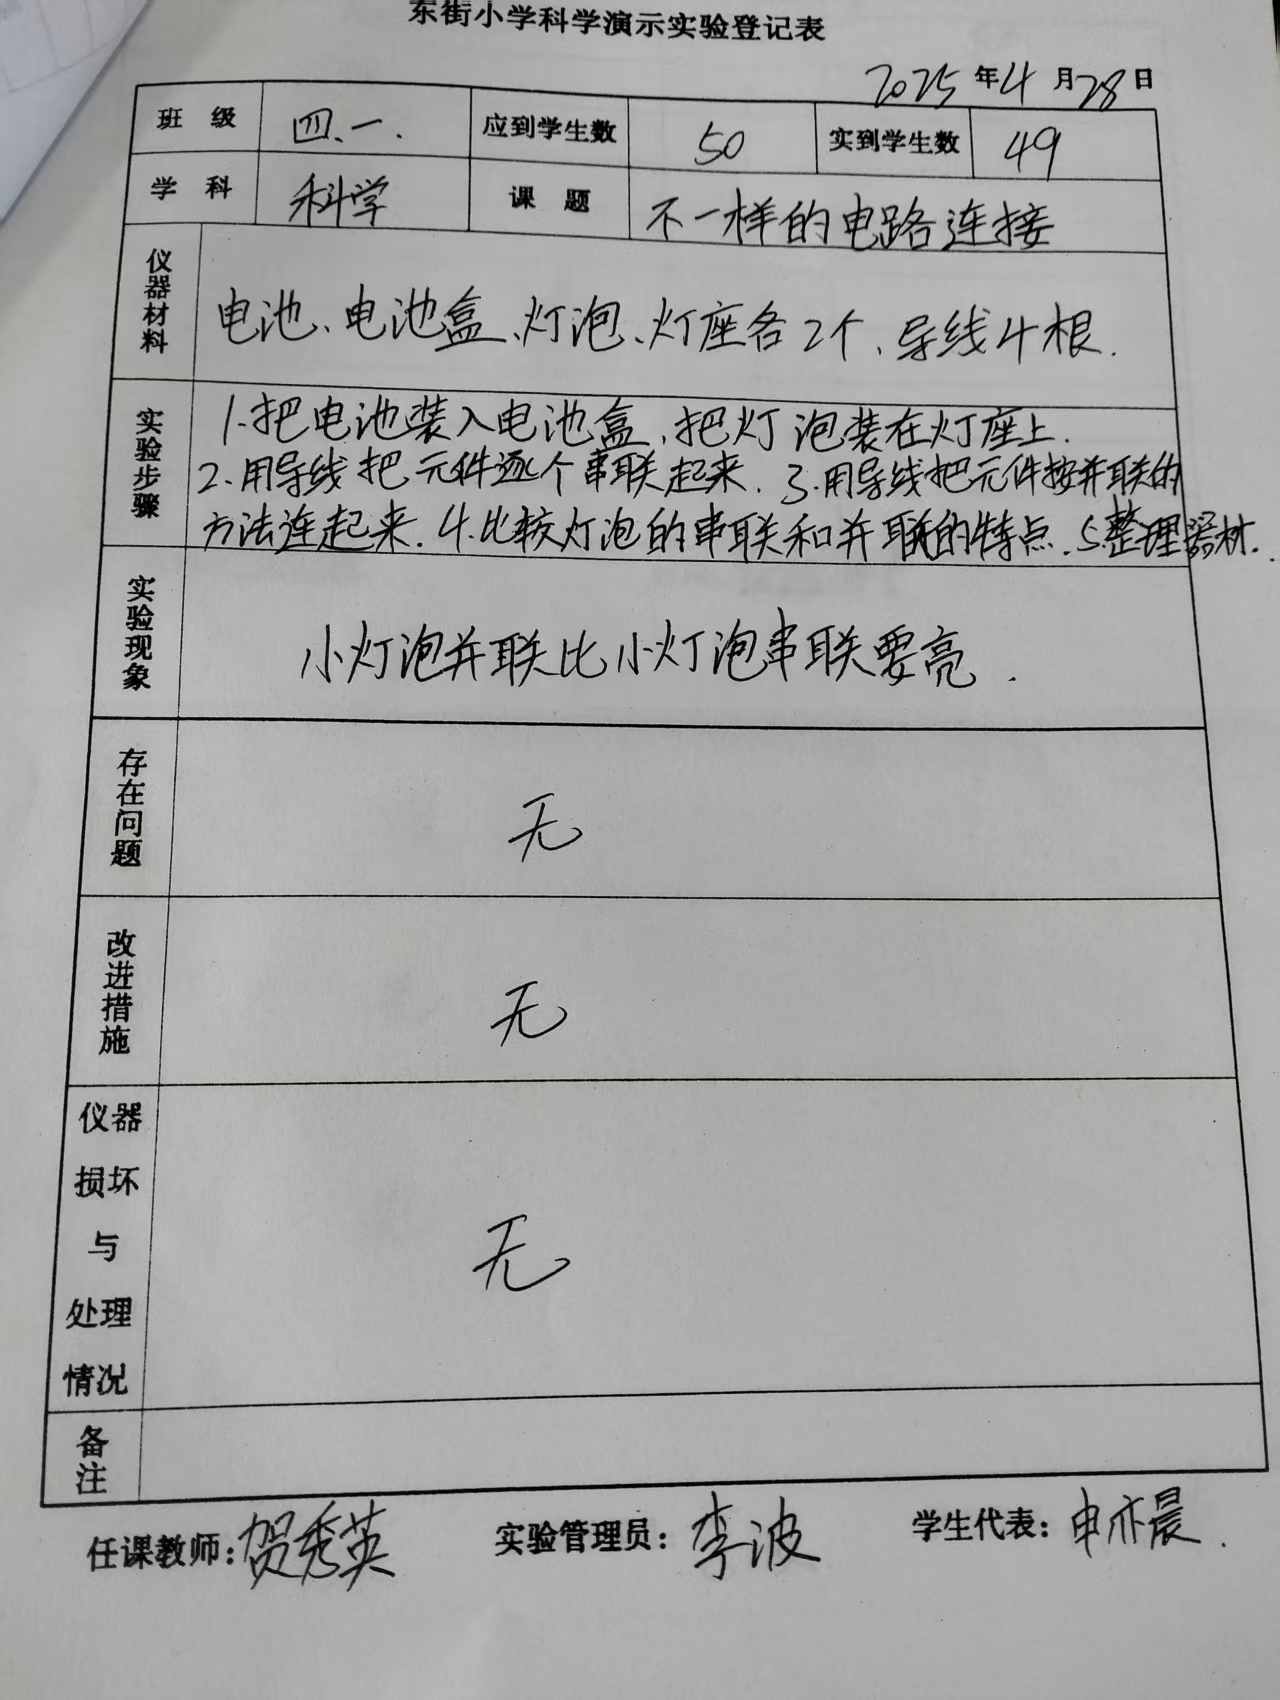 东街小学科学演示实验登记表
2025年4月28日
班 级 四.一. 应到学生数 50 实到学生数 49
学 科 科学 课 题 不一样的电路连接
仪器材料 电池、电池盒、灯泡、灯座各2个、导线4根.
实验步骤 1.把电池装入电池盒,把灯泡装在灯座上.
2.用导线把元件逐个串联起来. 3.用导线把元件按并联的
方法连起来. 4.比较灯泡的串联和并联的特点. 5.整理器材.
实验现象 小灯泡并联比小灯泡串联要亮.
存在问题 无
改进措施 无
仪器
损坏
与
处理
情况
无
备注
任课教师:贺秀英 实验管理员:李波 学生代表:申亦晨.